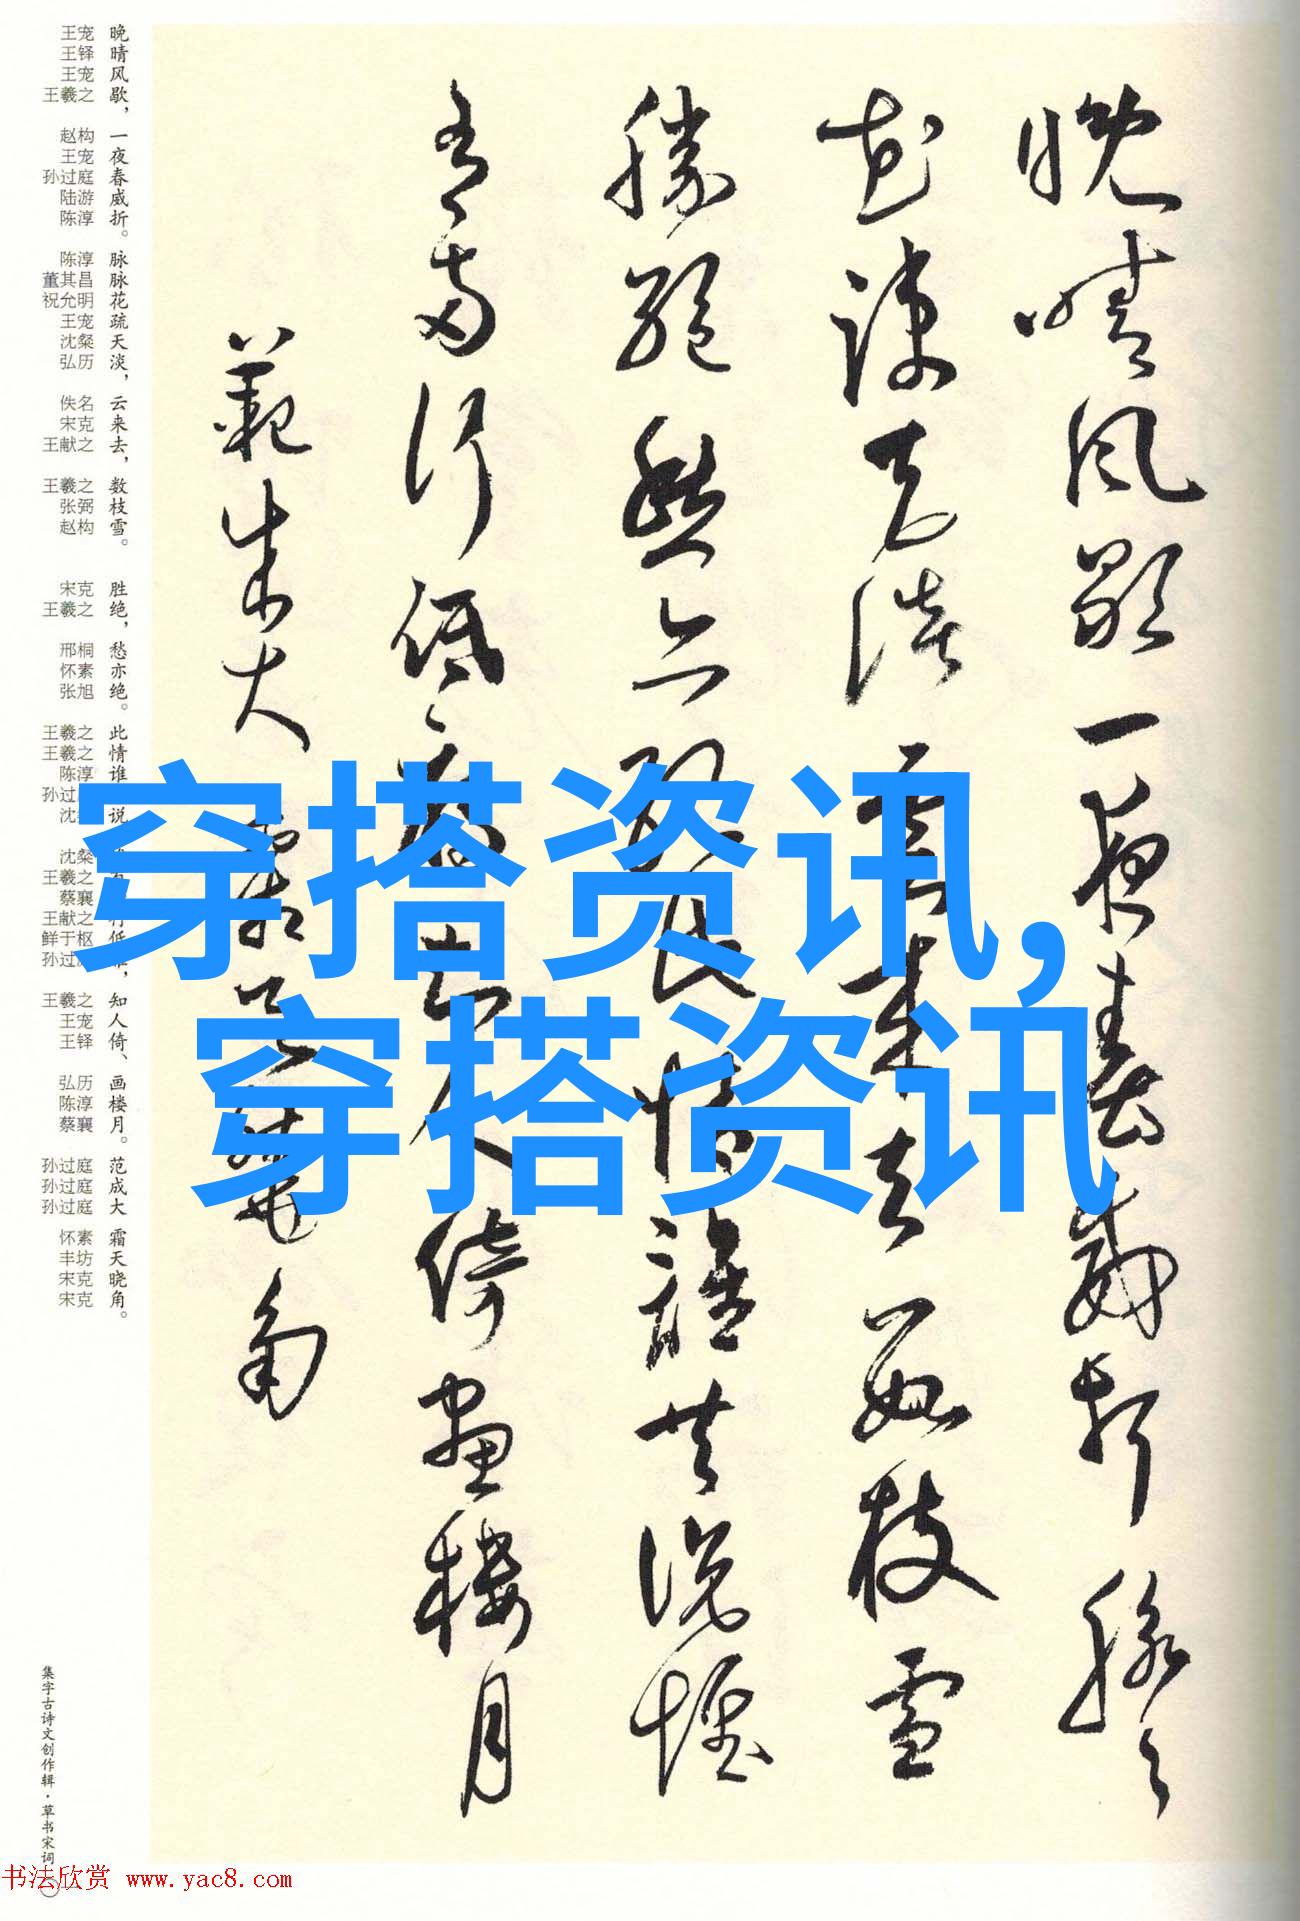 晚晴風歇一夜春威折脉々
花疎天淡雲来去數枝雪
勝絶愁亦絶此情誰共說惟
有兩行低雁知人倚畫樓月
範成大 霜天曉角
穿搭资讯,
穿搭资讯
晚晴风歇，一夜春威折。脉脉花疏天淡，云来去，数枝雪。胜绝，愁亦绝。此情谁说。低，知人倚、画楼月。范成大 霜天晓角。
王宠 王铎 王宠 王羲之 赵构 王宠 孙过庭 陆游 陈淳 陈淳 董其昌 祝允明 王宠 沈粲 弘历 佚名 宋克 王献之 王羲之 张弼 赵构 宋克 王羲之 邢桐 怀素 张旭 王羲之 王羲之 陈淳 孙过 沈 沈粲 王羲之 蔡襄 王献之 鲜于枢 孙过 王羲之 王宠 王铎 弘历 陈淳 蔡襄 孙过庭 孙过庭 孙过庭 怀素 丰坊 宋克 宋克
集字古诗文创作辑·草书宋词
书法欣赏 www.yac8.com